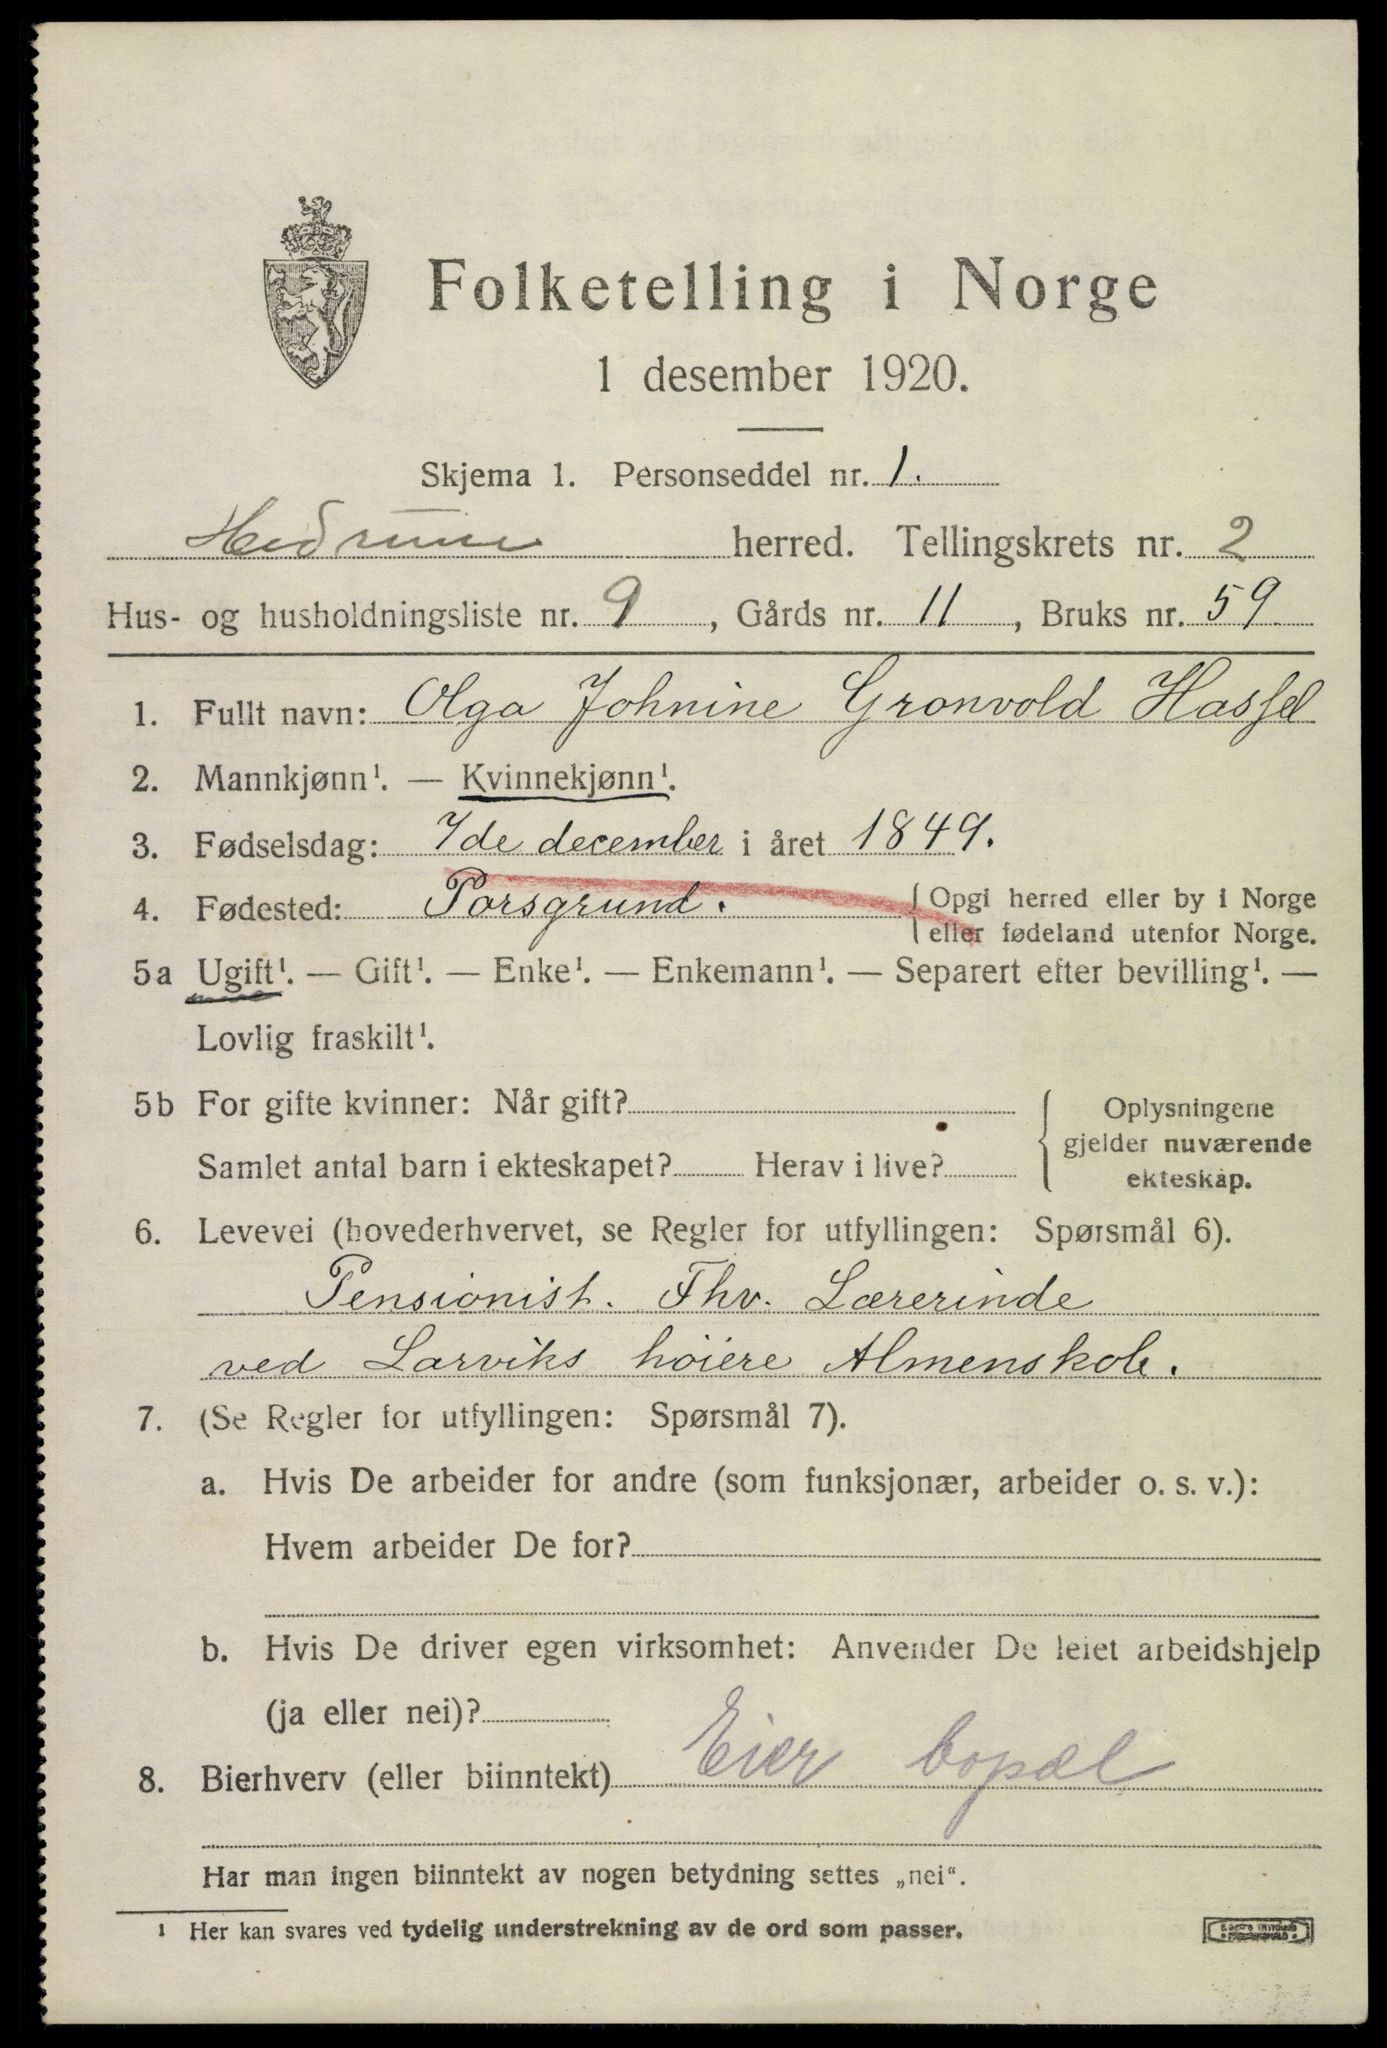 Folketelling i Norge
1 desember 1920.
Skjema 1. Personseddel nr. 1.
Hedrum herred. Tellingskrets nr. 2
Hus- og husholdningsliste nr. 9, Gårds nr. 11, Bruks nr. 59
1. Fullt navn: Olga Johnine Gronvold Hassel
2. Mannkjønn¹. — Kvinnekjønn¹.
3. Fødselsdag: 7de december i året 1849.
4. Fødested: Porsgrund. { Opgi herred eller by i Norge
eller fødeland utenfor Norge.
5a Ugift¹. — Gift¹. — Enke¹. — Enkemann¹. — Separert efter bevilling¹. —
Lovlig fraskilt¹.
5b For gifte kvinner: Når gift?
Samlet antal barn i ekteskapet? Herav i live?
{ Oplysningene
gjelder nuværende
ekteskap.
6. Levevei (hovederhvervet, se Regler for utfyllingen: Spørsmål 6).
Pensionist. Fhv. Lærerinde
ved Larviks höiere Almenskole.
7. (Se Regler for utfyllingen: Spørsmål 7).
a. Hvis De arbeider for andre (som funksjonær, arbeider o. s. v.):
Hvem arbeider De for?
b. Hvis De driver egen virksomhet: Anvender De leiet arbeidshjelp
(ja eller nei)?
8. Bierhverv (eller biinntekt) Eier bopæl
Har man ingen biinntekt av nogen betydning settes „nei“.
¹ Her kan svares ved tydelig understrekning av de ord som passer.